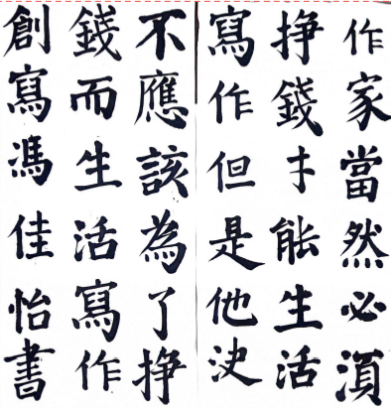 作家當然必湏
掙錢才能生活
寫作但是他決
不應該為了掙
錢而生活寫作
創寫馮佳怡書